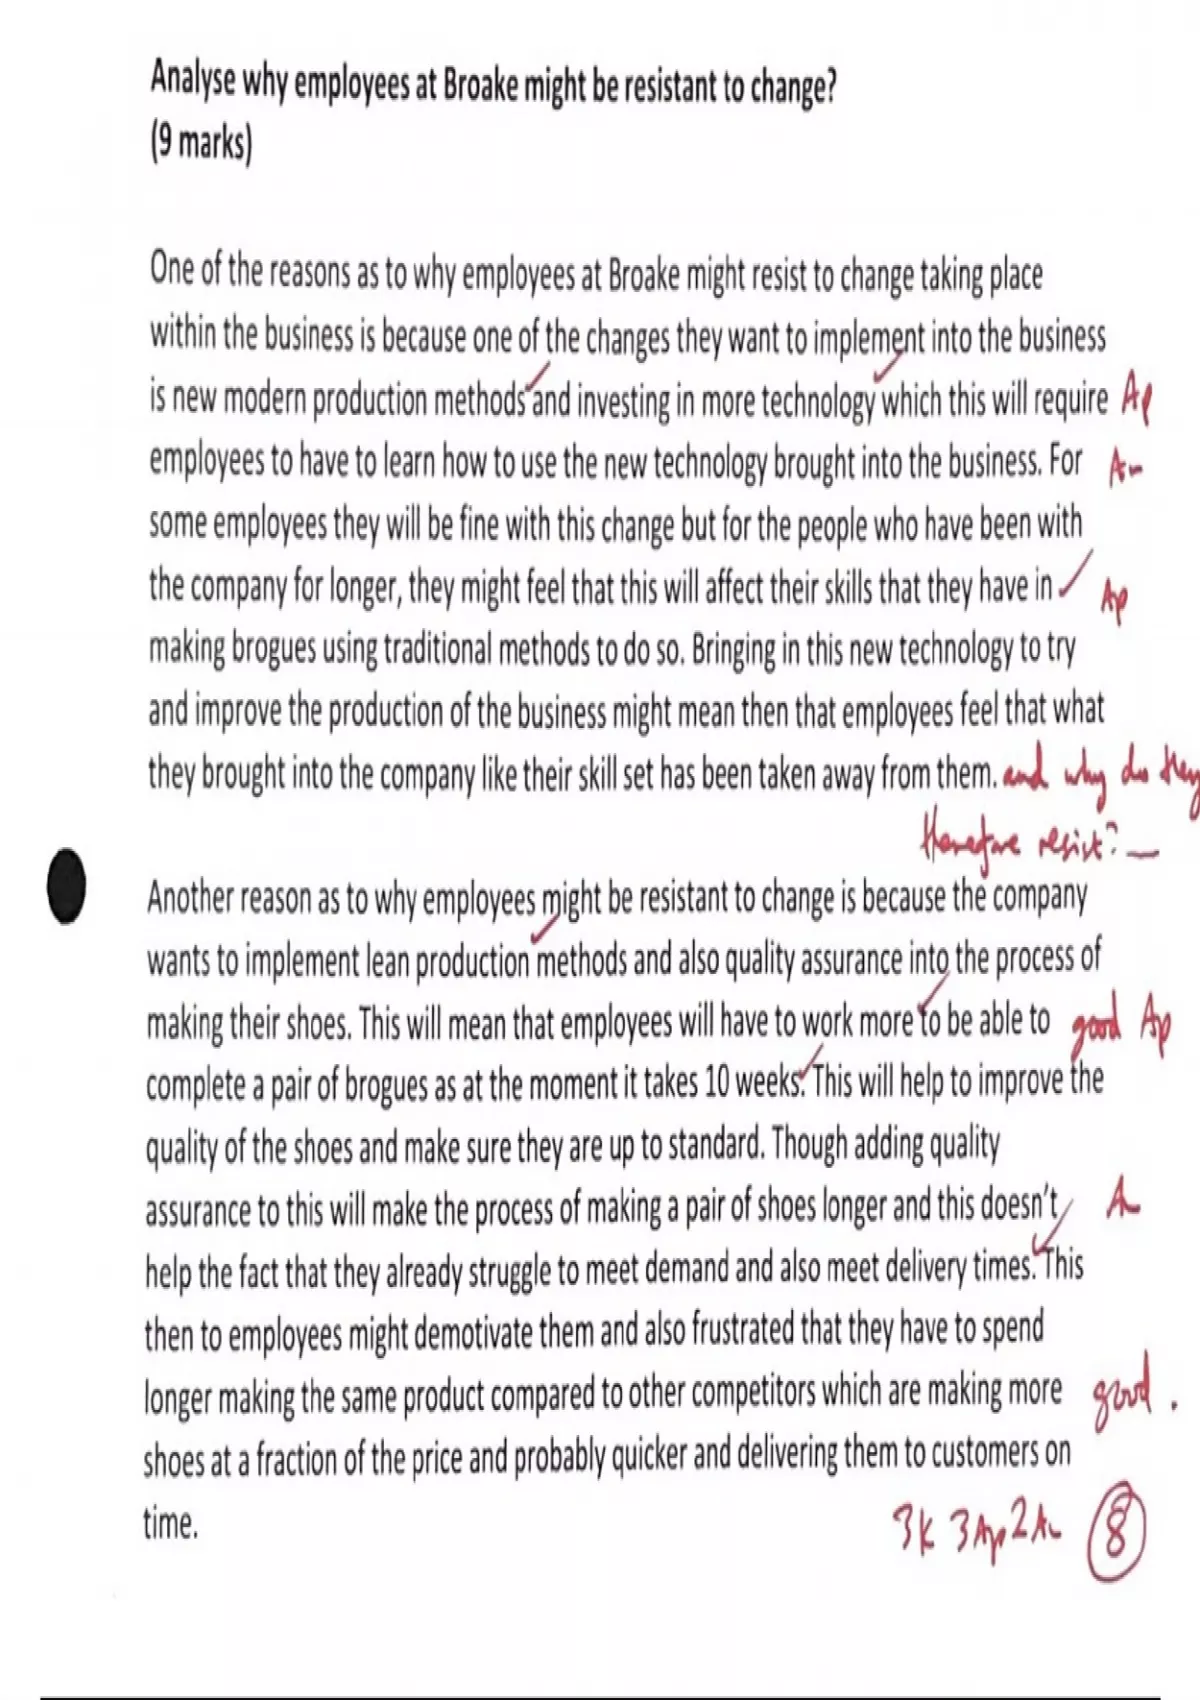 Analyse why employees at Broake might be resistant to change?
(9 marks)
One of the reasons as to why employees at Broake might resist to change taking place
within the business is because one of the changes they want to implement into the business
is new modern production methods and investing in more technology which this will require Ap
employees to have to learn how to use the new technology brought into the business. For An
some employees they will be fine with this change but for the people who have been with
the company for longer, they might feel that this will affect their skills that they have in Ap
making brogues using traditional methods to do so. Bringing in this new technology to try
and improve the production of the business might mean then that employees feel that what
they brought into the company like their skill set has been taken away from them. and why do they
therefore resist? —
Another reason as to why employees might be resistant to change is because the company
wants to implement lean production methods and also quality assurance into the process of
making their shoes. This will mean that employees will have to work more to be able to good Ap
complete a pair of brogues as at the moment it takes 10 weeks. This will help to improve the
quality of the shoes and make sure they are up to standard. Though adding quality
assurance to this will make the process of making a pair of shoes longer and this doesn't An
help the fact that they already struggle to meet demand and also meet delivery times. This
then to employees might demotivate them and also frustrated that they have to spend
longer making the same product compared to other competitors which are making more good.
shoes at a fraction of the price and probably quicker and delivering them to customers on
time. 3K 3Ap 2An 8